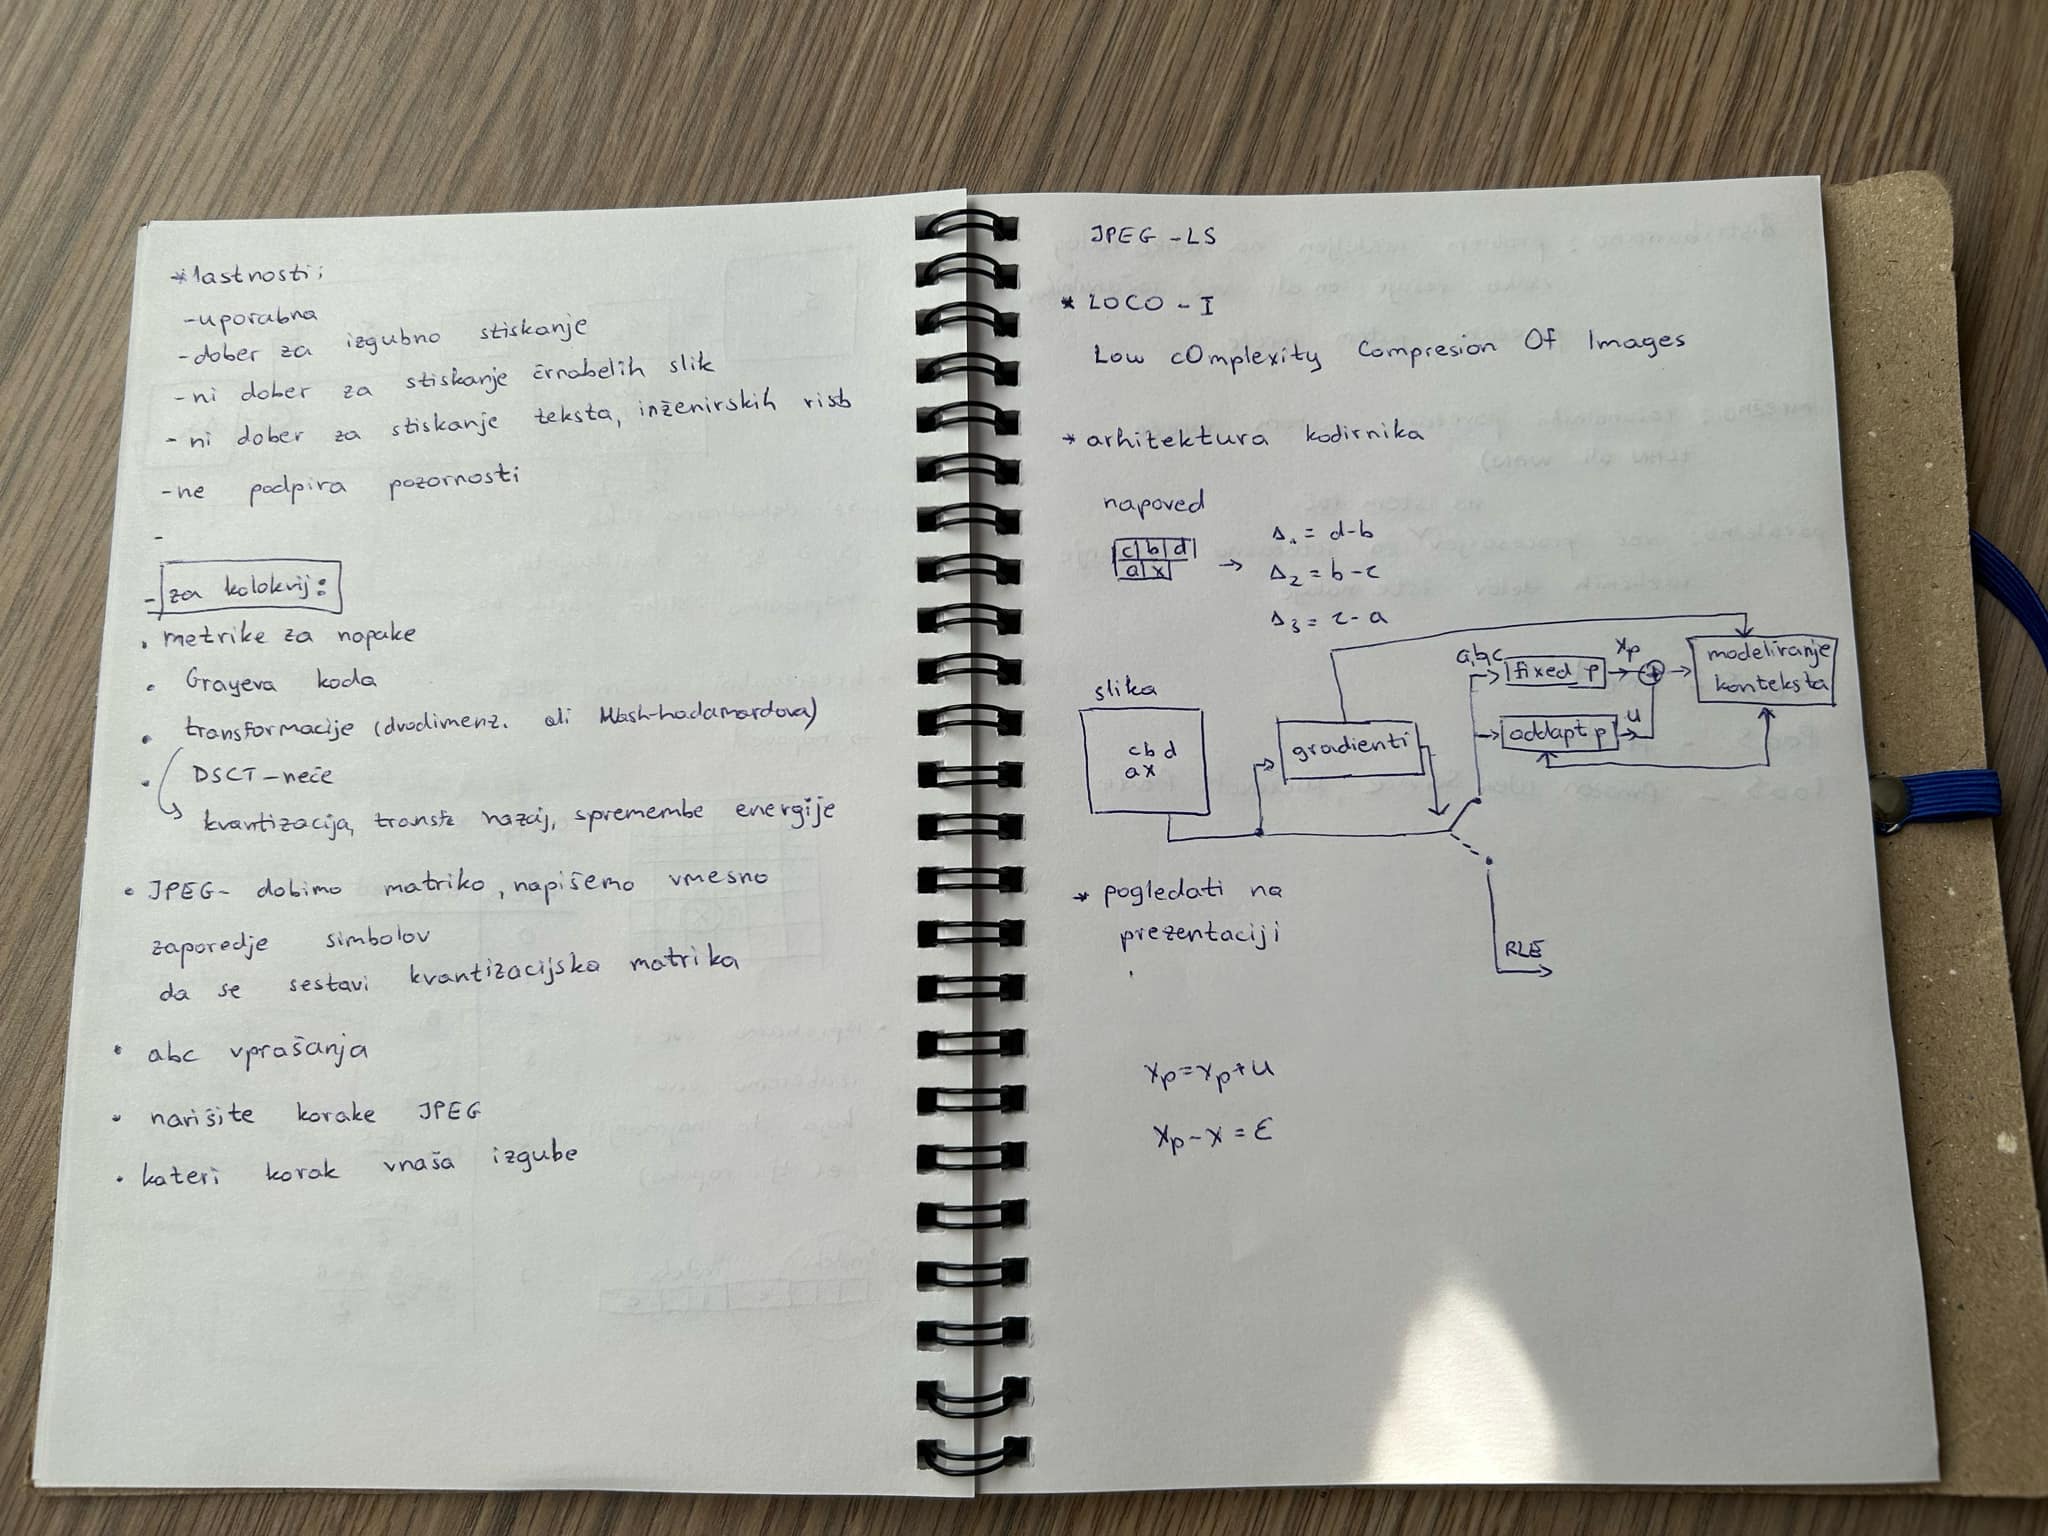 * lastnosti:
- uporabna
- dober za izgubno stiskanje
- ni dober za stiskanje črnabelih slik
- ni dober za stiskanje teksta, inženirskih risb
- ne podpira pozornosti
-
- za kolokvij:
• metrike za napake
• Grayeva koda
• transformacije (dvodimenz. ali Wash-hadamardova)
• DSCT - neče
kvantizacija, transf. nazaj, spremembe energije
• JPEG - dobimo matriko, napišemo vmesno
zaporedje simbolov
da se sestavi kvantizacijska matrika
• abc vprašanja
• narišite korake JPEG
• kateri korak vnaša izgube
JPEG - LS
* LOCO - I
Low cOmplexity Compresion Of Images
* arhitektura kodirnika
napoved
c b d
a x
→ Δ₁ = d-b
Δ₂ = b-c
Δ₃ = c-a
slika
c b d
a x
gradienti
a,b,c
fixed p
xp
+
addapt p
u
modeliranje
konteksta
RLE
* pogledati na
prezentaciji
xp = xp + u
xp - x = ε